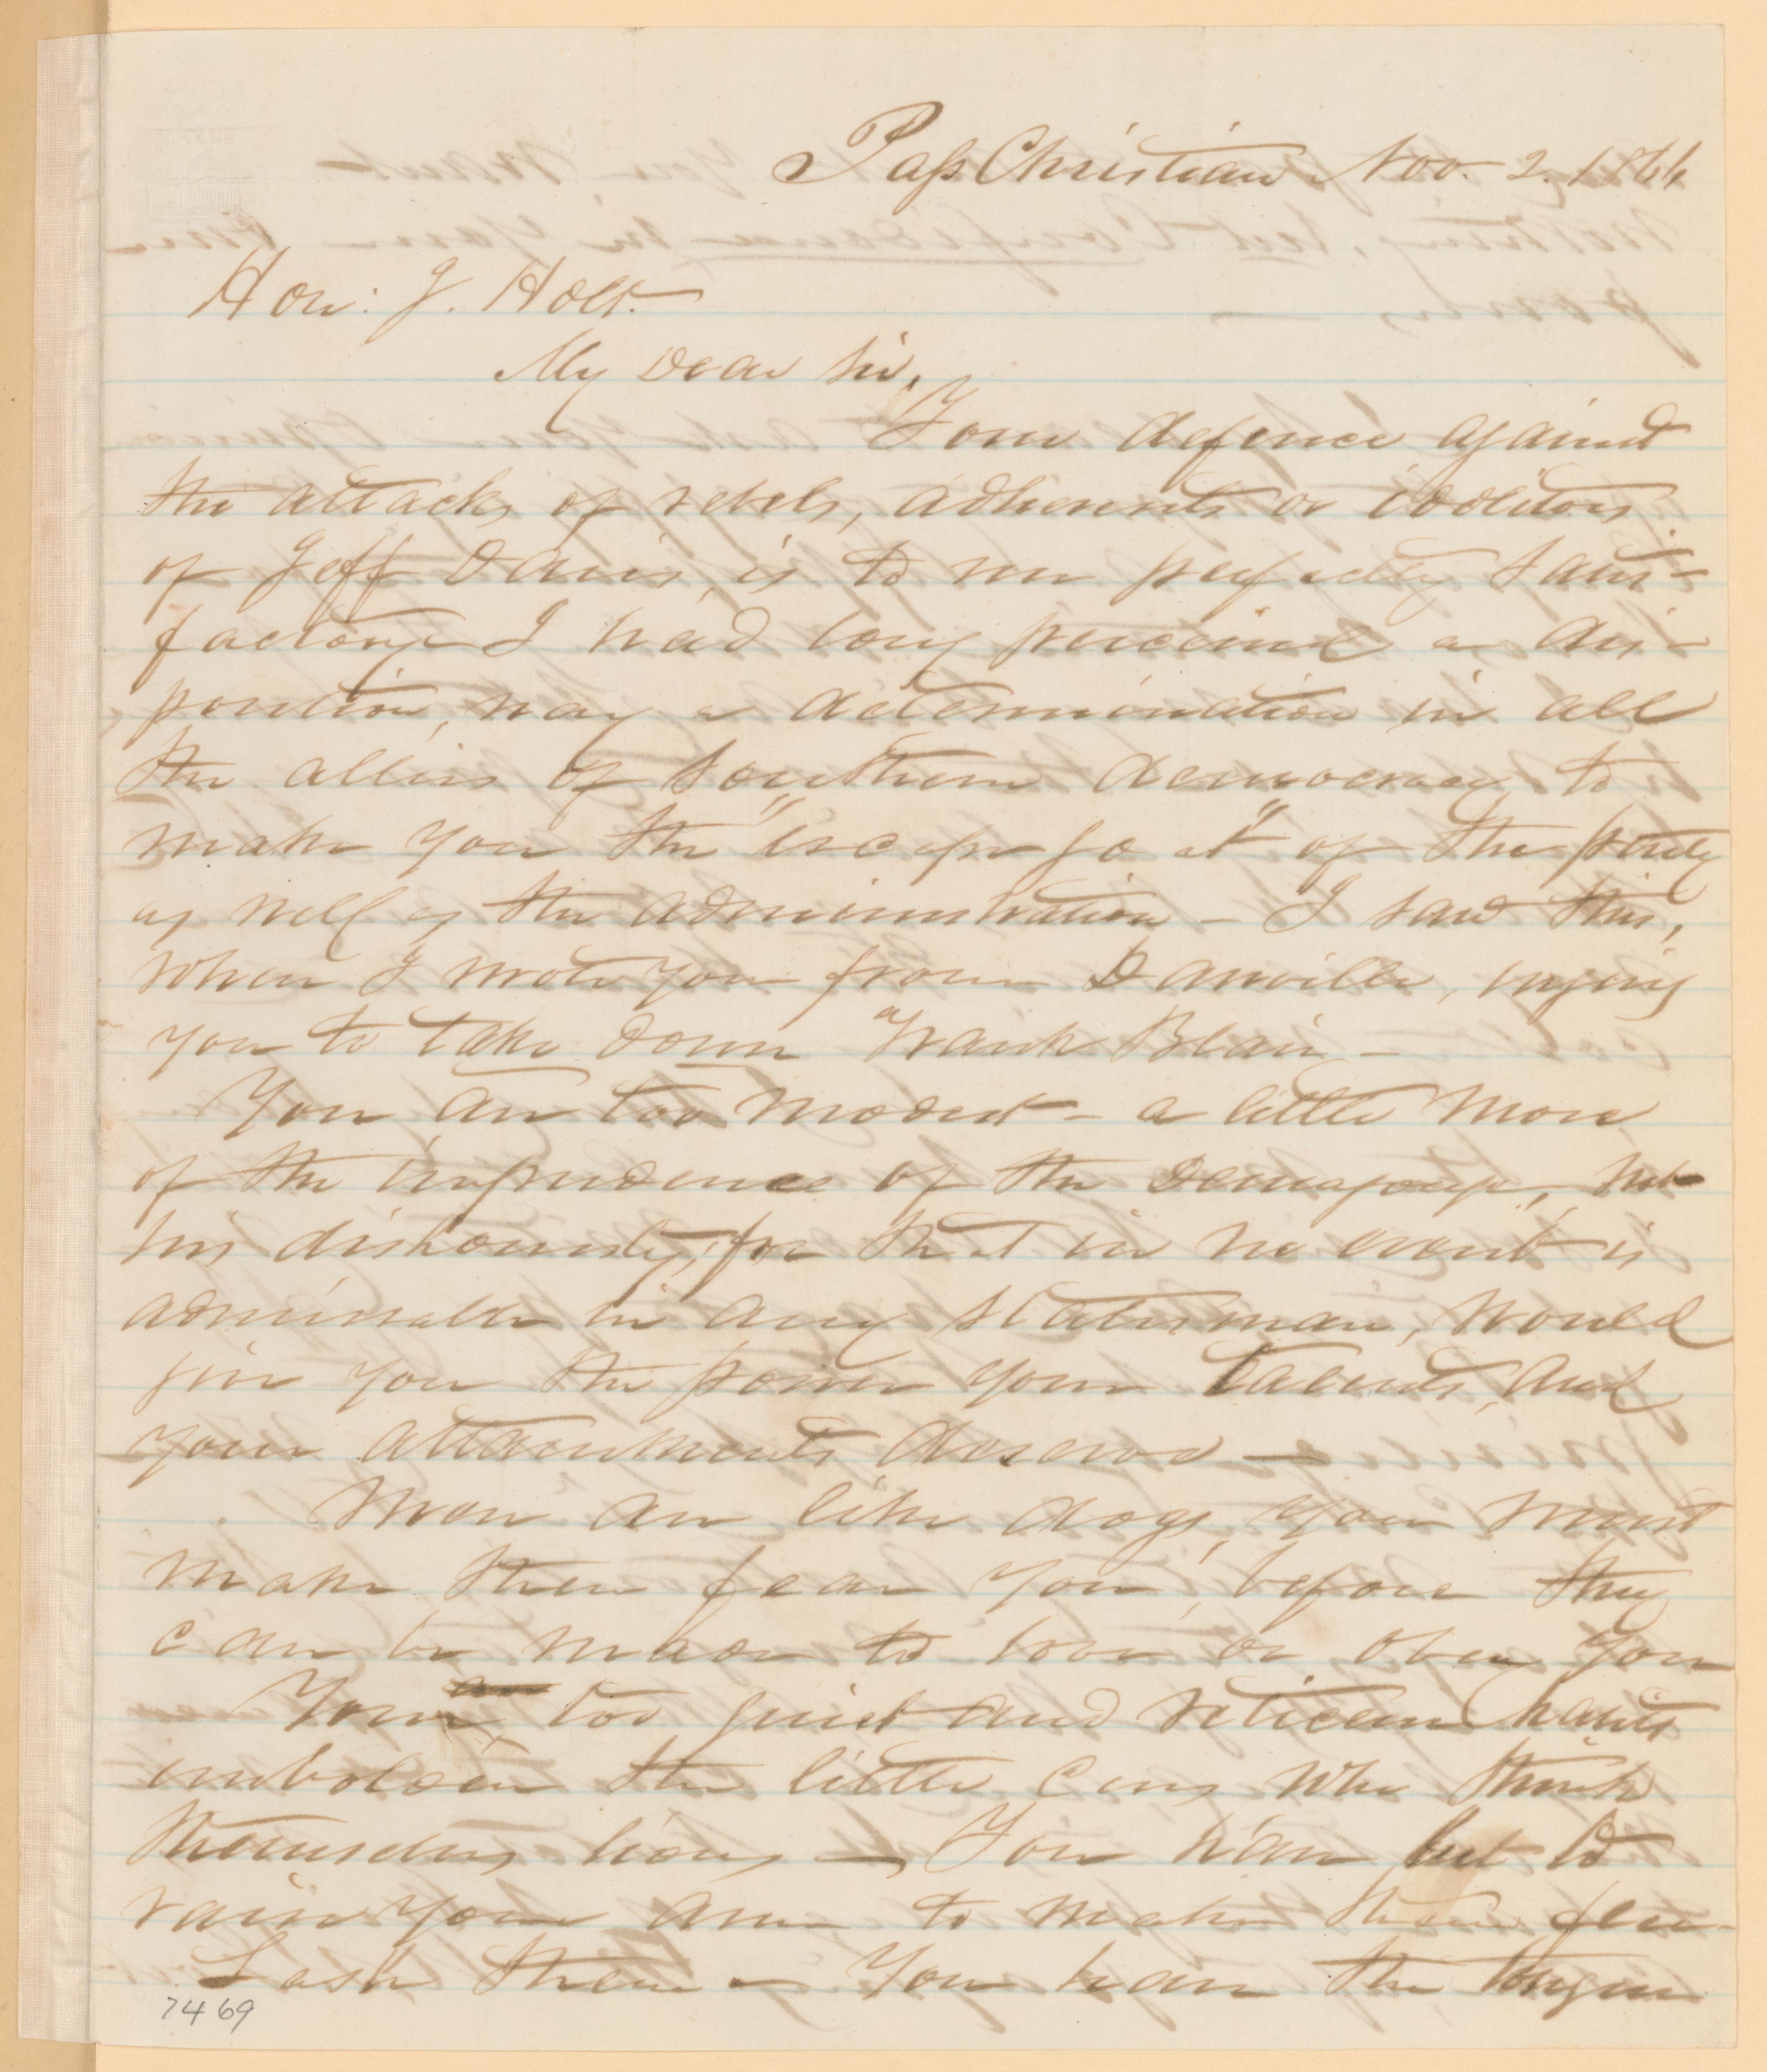 Pass Christian Nov. 2. 1866
Hon: J. Holt.
My Dear Sir,
Your defence against
the attacks of rebels, adherents or idolitors
of Jeff Davis, is to me perfectly satis-
factory I had long perceived a dis-
position, nay a determination in all
the allies of Southern democracy to
make you the "escape goat" of the party
as well as the administration - I saw this,
when I wrote you from Danville, urging
you to take down Frank Blair -
You are too modest - a little more
of the impudence of the Demagogue, not
his dishonesty, for that in no event is
admirable in any statesman, would
give you the power your talents, and
your attainments deserve -
Men are like dogs, you must
make them fear you, before they
can be made to love or obey you
Your too quiet and reticent habits
imbolden the little curs who think
themselves lions - You have but to
raise your arm to make them flee -
Lash them - You have the tongue
7469